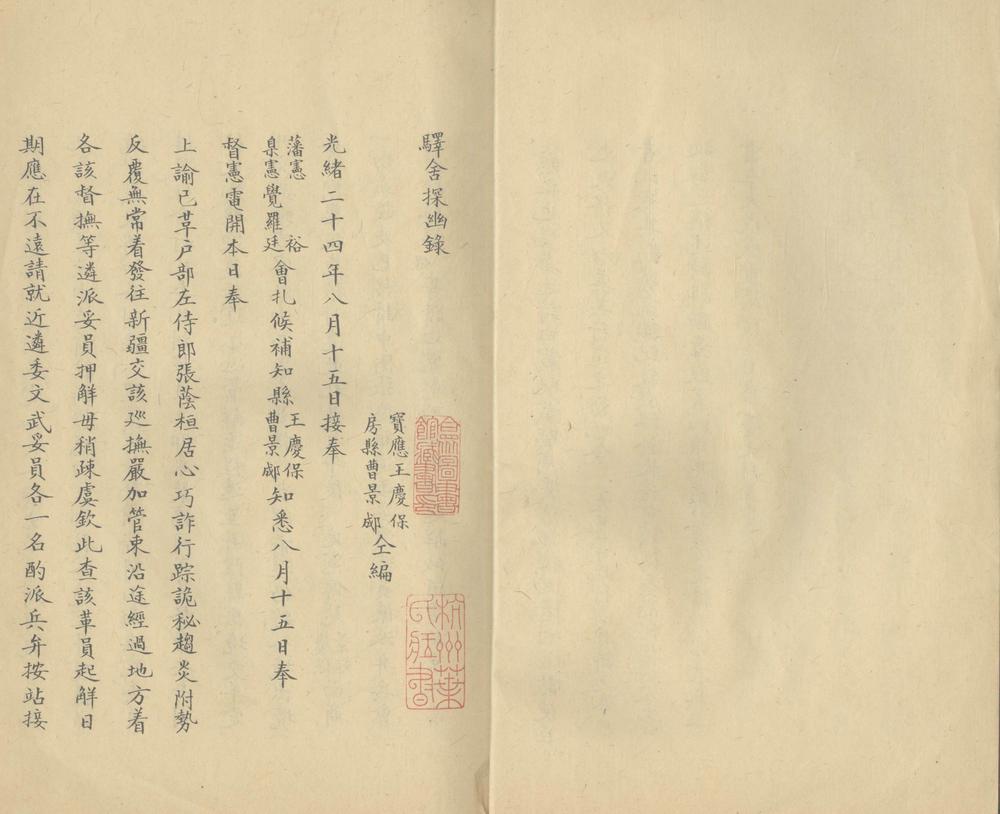 驛舍探幽錄
寶應王慶保
房縣曹景郕
仝編
光緒二十四年八月十五日接奉
藩憲 裕
臬憲覺羅廷
會札候補知縣
王慶保
曹景郕
知悉八月十五日奉
督憲電開本日奉
上諭已革戶部左侍郎張蔭桓居心巧詐行踪詭秘趨炎附勢
反覆無常着發往新疆交該廵撫嚴加管束沿途經過地方着
各該督撫等遴派妥員押解毋稍疎虞欽此查該革員起解日
期應在不遠請就近遴委文武妥員各一名酌派兵弁按站接
杭州葉
氏藏書